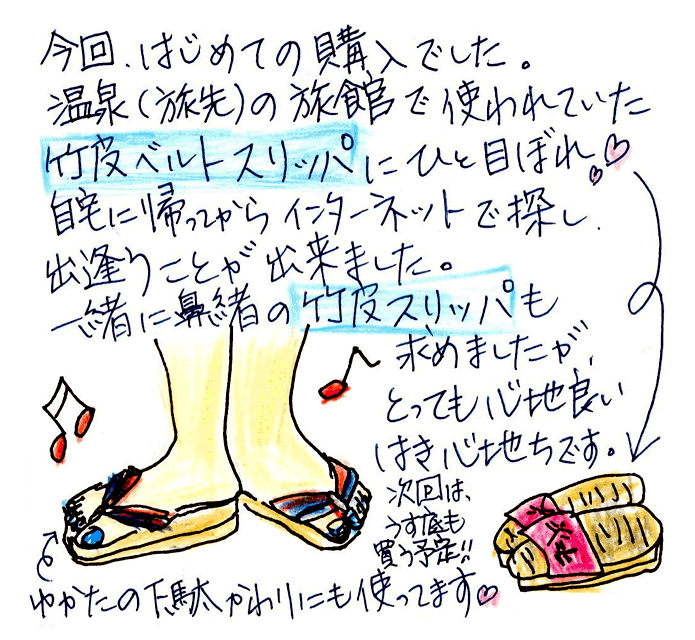 今回、はじめての購入でした。
温泉(旅先)の旅館で使われていた
竹皮ベルトスリッパにひと目ぼれ♡
自宅に帰ってからインターネットで探し、
出逢うことが出来ました。
一緒に鼻緒の竹皮スリッパも
求めましたが、
とっても心地良い
はき心地ちです。
次回は、
うす底も
買う予定!!
ゆかたの下駄かわりにも使ってます♡